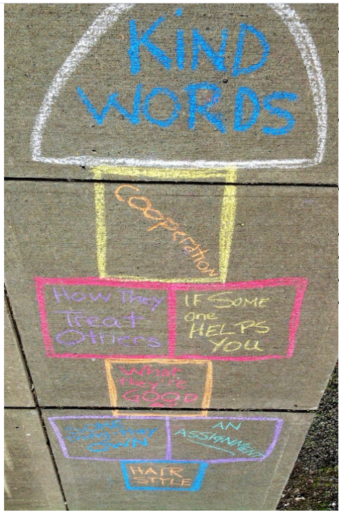 KiND
WORDS
COOPERATION
How They
Treat
Others
IF SOME
one
HELPS
YOU
What
they're
GOOD
OWN
AN
ASSIGNMENT
HAIR
STYLE